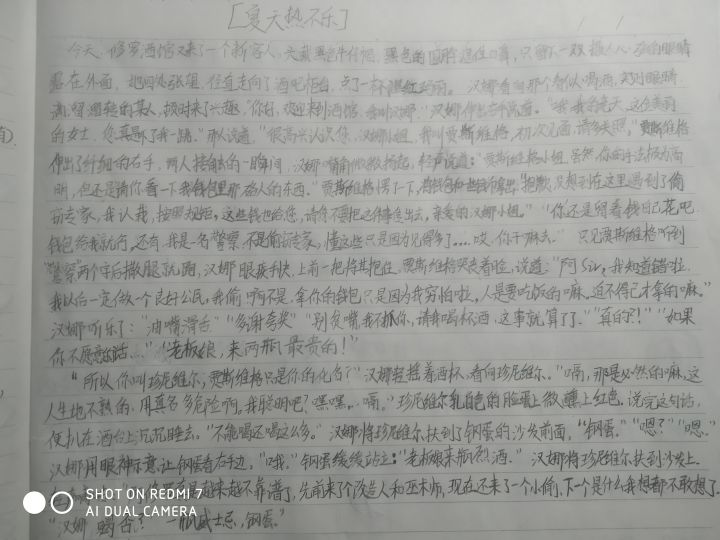 [夏天热不乐]
今天，修罗酒馆又来了一个新客人，头戴黑色牛仔帽，黑色的面罩遮住口鼻，只留下一双摄人心魂的眼睛
露在外面，她四处张望，径直走向了酒吧柜台，点了一杯 汉娜看向那个看似喝酒，实则眼睛
滴溜溜转的某人，顿时来了兴趣，"你好，欢迎来到酒馆，我叫汉娜。"汉娜伸出右手说道。"哦，我的天，这位美丽
的女士，您真是吓我一跳。"那人说道，"很高兴认识你，汉娜小姐，我叫贾斯维格，初次见面，请多关照。"贾斯维格
伸出了纤细的右手，两人接触的一瞬间，汉娜嘴角微微扬起，轻声说道："贾斯维格小姐，虽然你的手法极为高
明，但还是请你看一下我钱包里那 人的东西。"贾斯维格愣了一下，将钱包和些钱拿出，"抱歉，没想到在这里遇到了偷
窃专家，我认栽，按照规矩，这些钱也给您，请您不要把这件事传出去，亲爱的汉娜小姐。""你还是留着钱自己花吧
钱包给我就行，还有，我是一名警察，不是偷窃专家，懂这些只是因为见得多了....哎，你干嘛去。"只见贾斯维格听到
"警察"两个字后撒腿就跑，汉娜眼疾手快，上前一把将其抱住，贾斯维格哭丧着脸，说道："阿Sir，我知道错啦，
我以后一定做一个良好公民，我偷啊不是，拿你的钱包只是因为我穷怕啦，人是要吃饭的嘛，迫不得已才拿的嘛。"
汉娜听乐了："油嘴滑舌""多谢夸奖""别贫嘴，我不抓你，请我喝杯酒，这事就算了。""真的?!""如果
你不愿意的话....""老板娘，来两瓶最贵的！"
"所以你叫珍尼维尔，贾斯维格只是你的化名？"汉娜轻摇着酒杯，看向珍尼维尔。"嗝，那是必然的嘛，这
人生地不熟的，用真名多危险啊，我聪明吧？嘿嘿..嗝。"珍尼维尔乳白色的脸蛋上微醺上红色，说完这句话，
便趴在酒台上沉沉睡去。"不能喝还喝这么多。"汉娜将珍尼维尔扶到了钢蛋的沙发前面，"钢蛋。""嗯？""嗯"
汉娜用眼神示意让钢蛋看右手边，"哦。"钢蛋缓缓站立："老板娘来瓶烈酒。"汉娜将珍尼维尔扶到沙发上。
越来越不靠谱了，先前来了个改造人和巫术师，现在还来了一个小偷，下一个是什么我想都不敢想了。
"汉娜 喝否？" 一瓶威士忌，钢蛋。"
SHOT ON REDMI 7
AI DUAL CAMERA